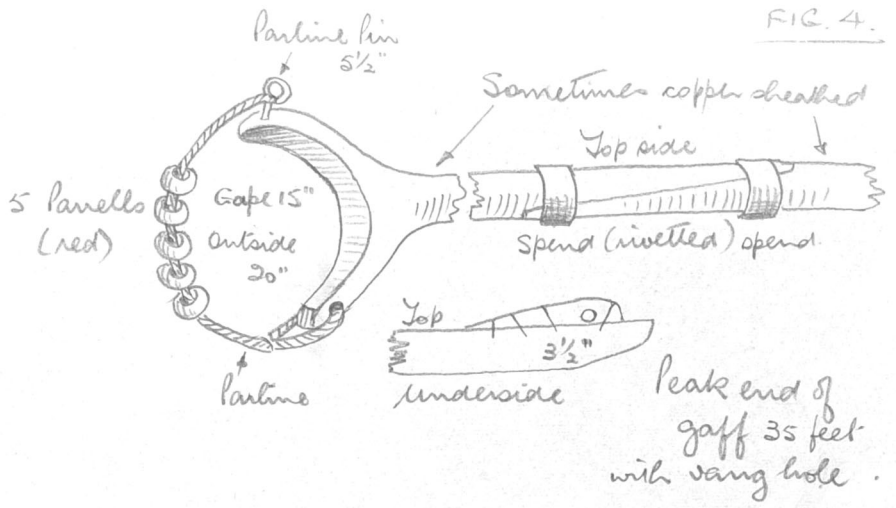 FIG. 4.
Parline Pin
5½"
Sometimes copper sheathed
Top side
5 Parrells
(red)
Gape 15"
outside
20"
Spend (rivetted) spend.
Top
3½"
Parline
Underside
Peak end of
gaff 35 feet
with vang hole.